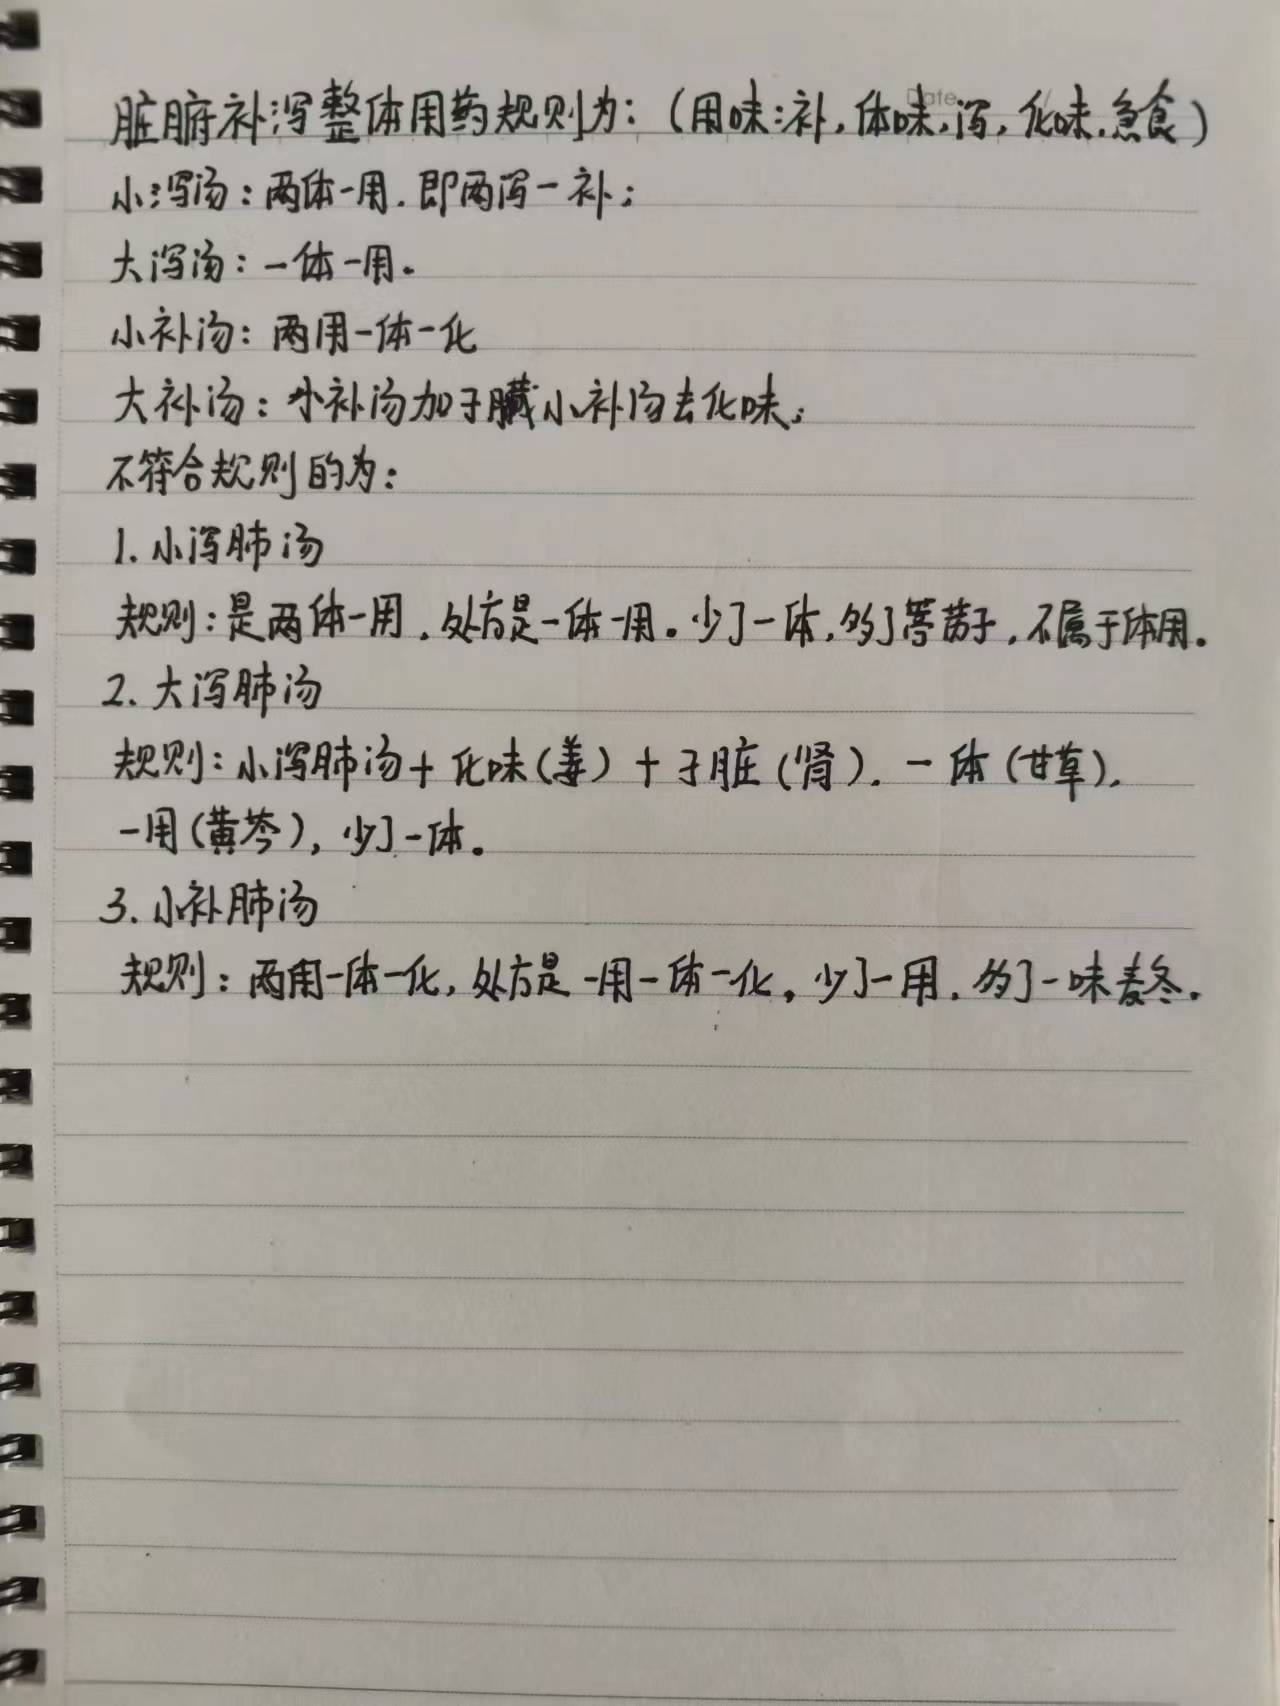 Date
脏腑补泻整体用药规则为：（用味：补，体味，泻，化味，急食）
小泻汤：两体一用，即两泻一补；
大泻汤：一体一用。
小补汤：两用一体一化
大补汤：小补汤加子臟小补汤去化味；
不符合规则的为：
1. 小泻肺汤
规则：是两体一用，处方是一体一用。少了一体，多了葶苈子，不属于体用。
2. 大泻肺汤
规则：小泻肺汤+化味（姜）+子脏（肾），一体（甘草），
一用（黄芩），少了一体。
3. 小补肺汤
规则：两用一体一化，处方是一用一体一化，少了一用，多了一味麦冬。